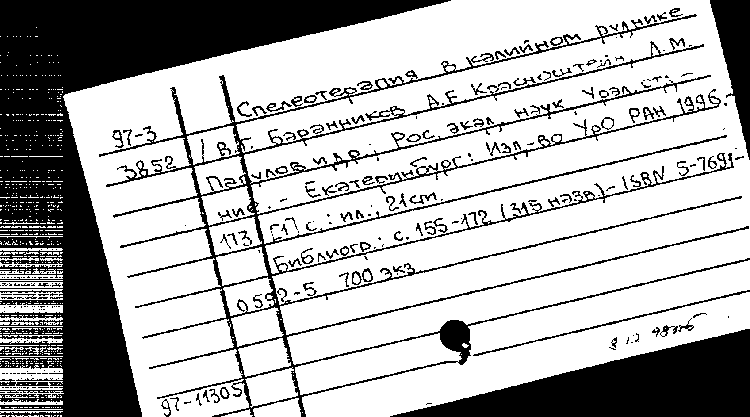 Спелеотерапия в калийном руднике
97-3
3852 / В.Г. Баранников, А.Е. Красноштейн, Л.М.
Папулов и др.; Рос. акад. наук, Урал. отд-
ние. - Екатеринбург: Изд-во УрО РАН, 1996.-
173 [1] с.: ил.; 21см.
Библиогр.: с. 155-172 (315 назв.)- ISBN 5-7691-
0592-5, 700 экз.
97-11305